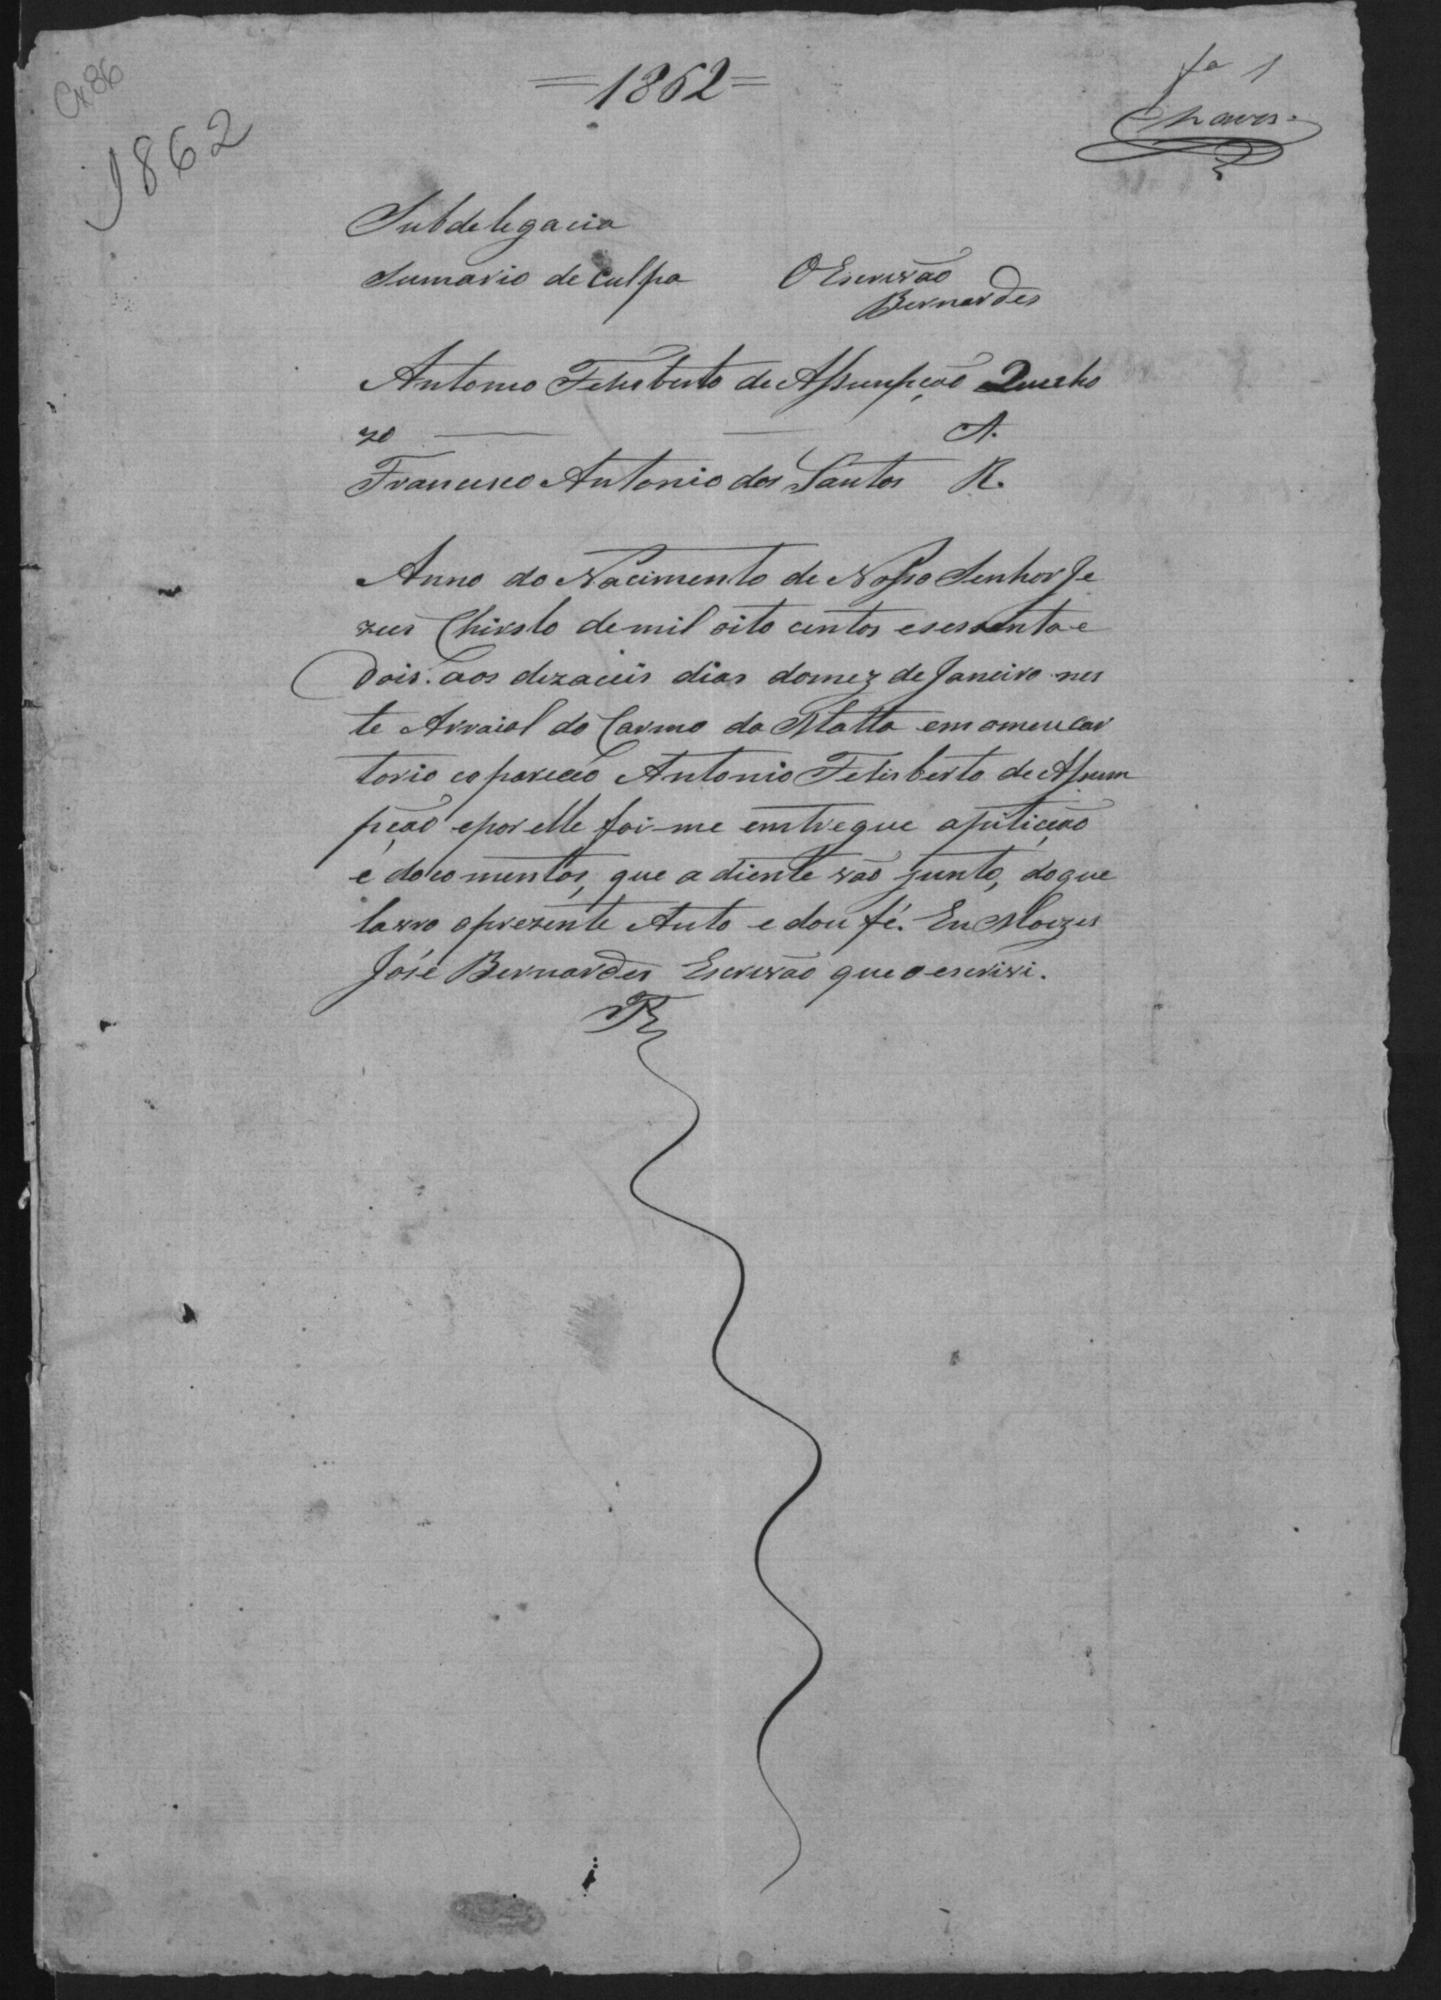 Cx 86
1862
=1862=
fa 1
Chaves.
Subdelegacia
Sumario de Culpa
O Escrivão
Bernardes
Antonio Felisberto de Assumpção Queicho
zo A.
Francisco Antonio dos Santos R.
Anno do Nacimento de Nosso Senhor Je
zus Chirsto de mil oito centos e sessenta e
Dois. aos dezaceis dias do mez de Janeiro nes
te Arraial do Carmo da Matta em o meu car
torio coparecêo Antonio Felisberto de Assum
pção e por elle foi-me emtregue a pitição
e documentos, que a diente vão junto, do que
lavro o prezente Auto e dou fé. Eu Moizes
José Bernardes Escrivão que o escrivi.